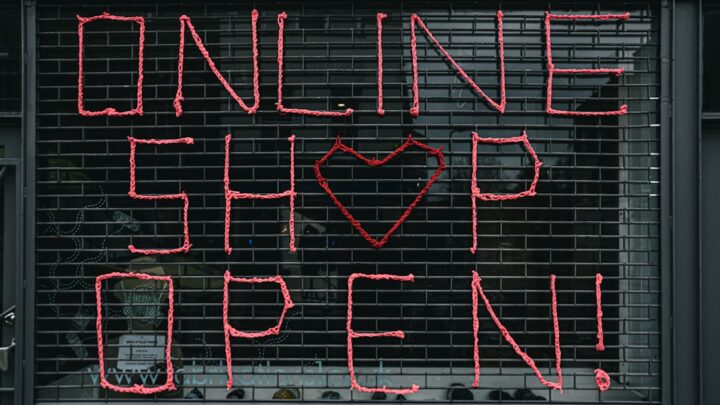 ONLINE
SH♥P
OPEN!
www.